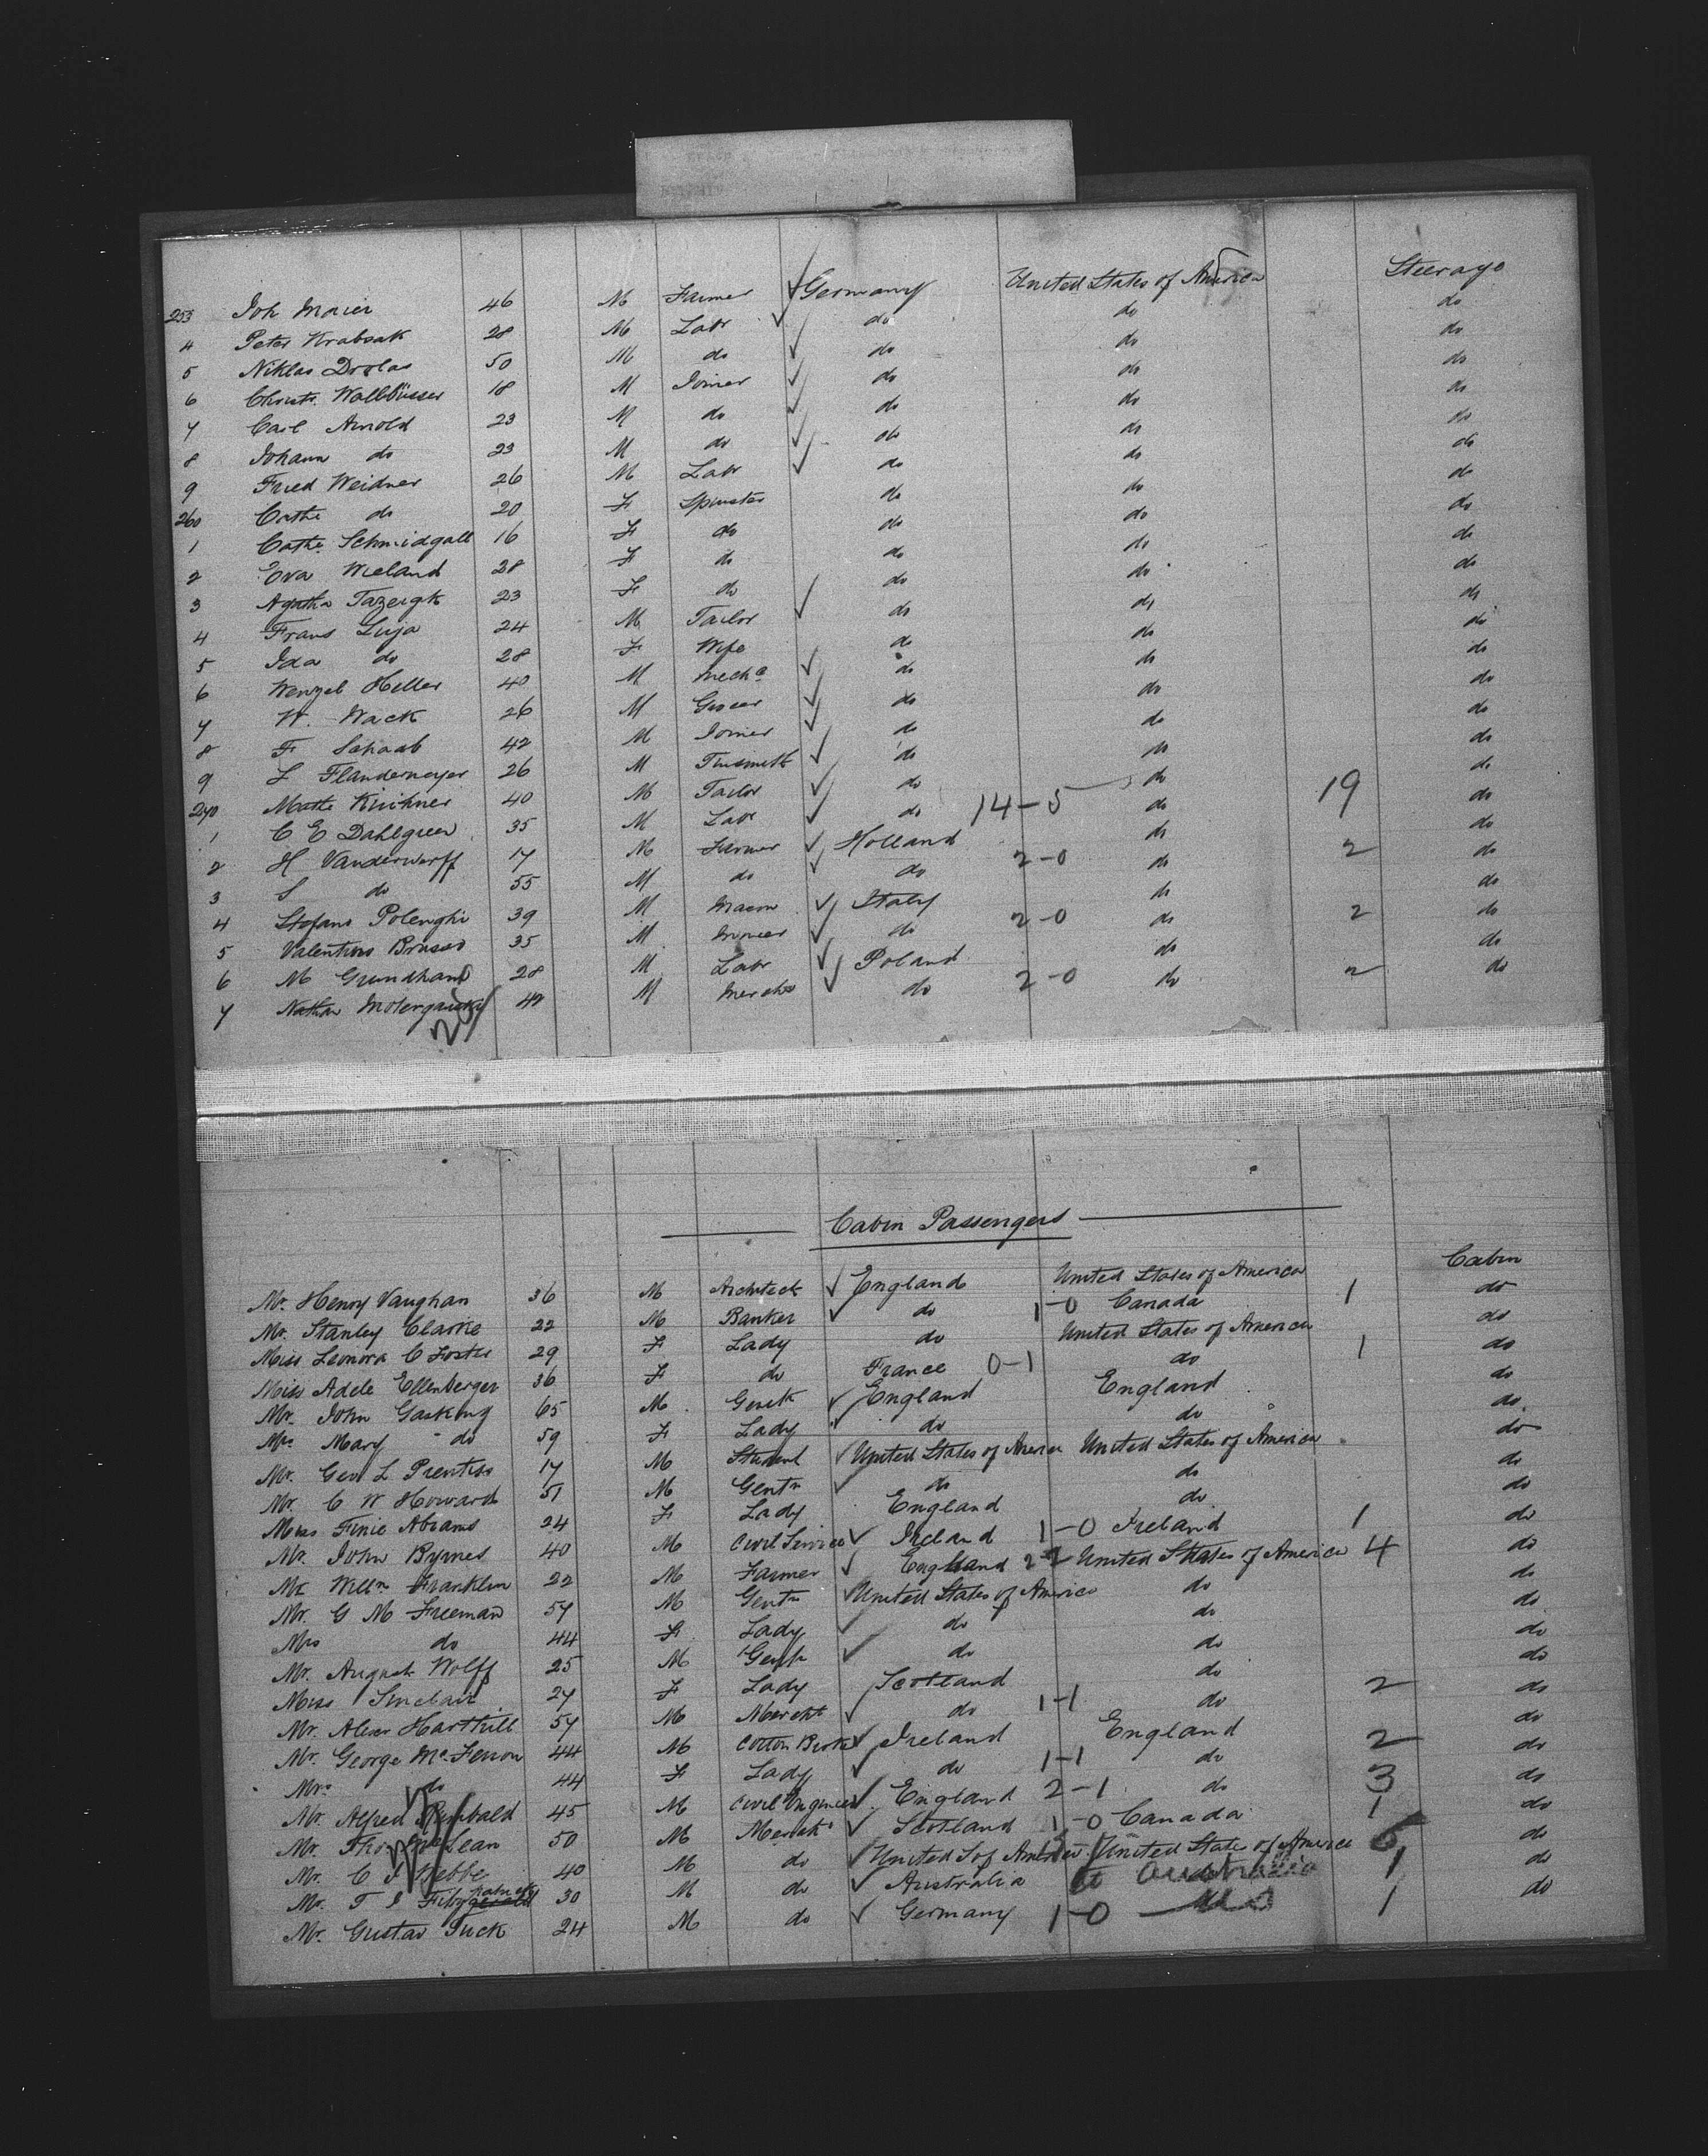 253 Joh Maier 46 M Farmer Germany United States of America Steerage
4 Peter Krabsak 28 M Labr do do do
5 Niklas Drolas 50 M do do do do
6 Christ. Wallbüsser 18 M Joiner do do do
7 Carl Arnold 23 M do do do do
8 Johann do 23 M do do do do
9 Fried Weidner 26 M Labr do do do
260 Cathe do 20 F Spinster do do do
1 Cathe Schmidgall 16 F do do do do
2 Eva Wieland 28 F do do do do
3 Agatha 23 F do do do do
4 Frans Luja 24 M Tailor do do do
5 Ida do 28 F Wife do do do
6 Wenzel Heller 40 M Mech do do do
7 W. Wack 26 M Grocer do do do
8 F Schaab 42 M Joiner do do do
9 L Flandermeyer 26 M Tinsmith do do do
270 Mathe Kirchner 40 M Tailor do do do
1 C E Dahlgreen 35 M Labr do 14-5 do 19 do
2 H Vanderwerff 17 M Farmer Holland do do
3 S do 55 M do do 2-0 do 2 do
4 Stefano Polenghi 39 M Mason Italy do do
5 Valentino Brusso 35 M Miner do 2-0 do 2 do
6 M Grundhand 28 M Labr Poland do do
7 Nathan 42 M Mercht do 2-0 do 2 do
Cabin Passengers
Mr. Henry Vaughan 36 M Architect England United States of America Cabin
Mr. Stanley Clarke 22 M Banker do 1-0 Canada 1 do
Miss Leonora C Foster 29 F Lady do United States of America do
Miss Adele Ellenberger 36 F do France 0-1 do 1 do
Mr. John Gasking 65 M Gentn England England do
Mrs Mary do 59 F Lady do do do
Mr. Geo L Prentiss 17 M Student United States of America United States of America do
Mr. C W Howard 51 M Gentn do do do
Miss Finie Abrams 24 F Lady England do do
Mr. John Byrnes 40 M Civil Service Ireland 1-0 Ireland 1 do
Mr. Willm Franklin 22 M Farmer England 2-2 United States of America 4 do
Mr. G M Freeman 57 M Gentn United States of America do do
Mrs do 44 F Lady do do do
Mr. August Wolff 25 M Gentn do do do
Miss Sinclair 27 F Lady Scotland do do
Mr. Alexr Harthill 57 M Mercht do 1-1 do 2 do
Mr. George McFerron 44 M Cotton Broker Ireland England do
Mrs do 44 F Lady do 1-1 do 2 do
Mr. Alfred Rumbald 45 M Civil Engineer England 2-1 do 3 do
Mr. Thos McLean 50 M Mercht Scotland 1-0 Canada 1 do
Mr. C J Nebbe 40 M do United S of America United States of America 5 do
Mr. T J Fitzpatrick 30 M do Australia Australia 1 do
Mr. Gustav Suck 24 M do Germany 1-0 1 do